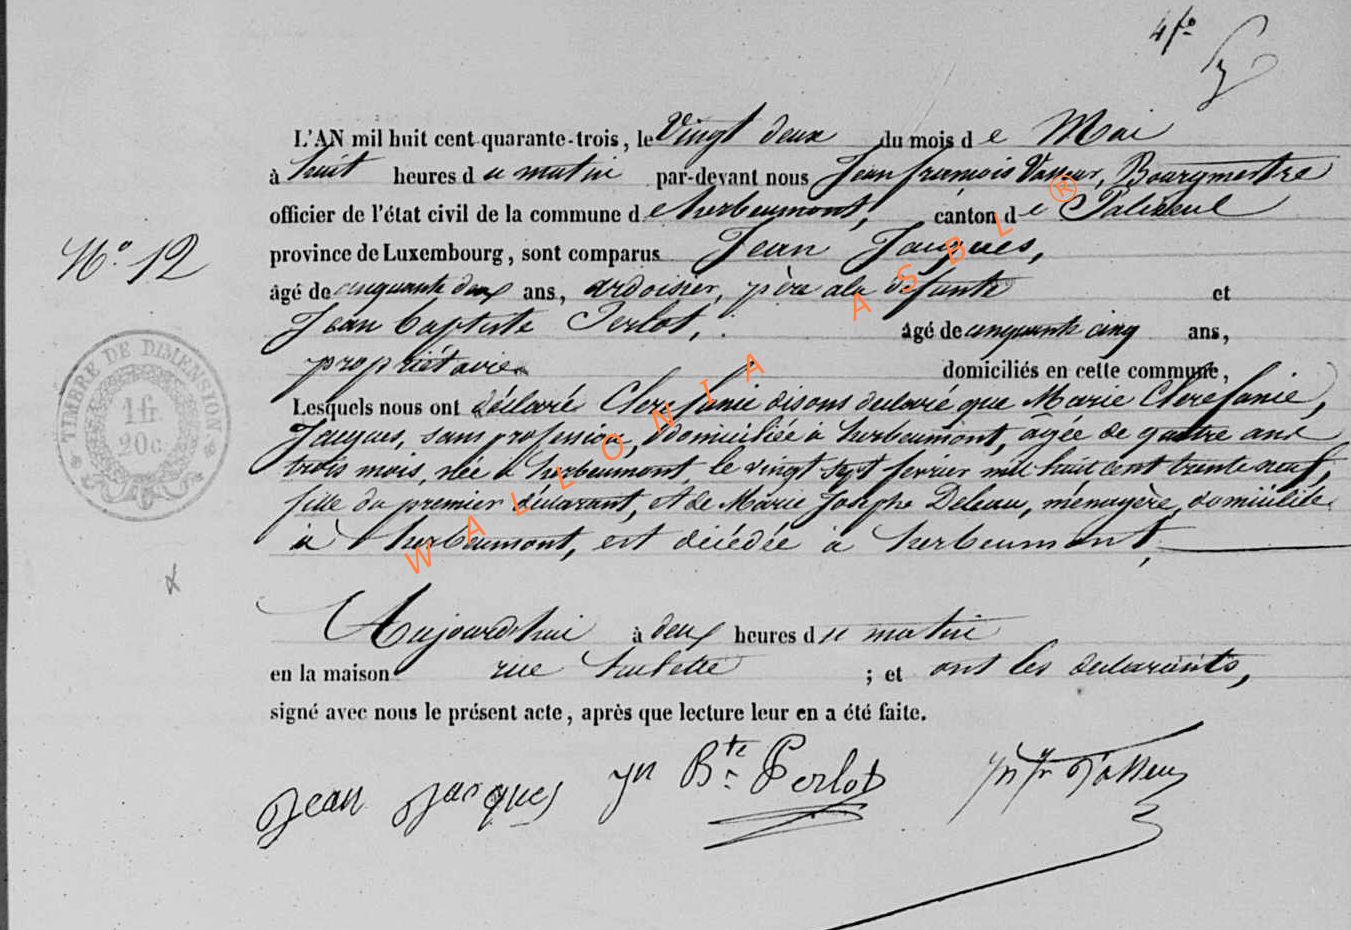 4 fo
L'AN mil huit cent quarante-trois, le Vingt deux du mois de Mai
à huit heures du matin par-devant nous Jean françois Vasseur, Bourgmestre
officier de l'état civil de la commune de herbeumont, canton de Paliseul
No 12
province de Luxembourg, sont comparus Jean Jacques,
âgé de cinquante deux ans, ardoisier, père ala défunte et
Jean baptiste Perlot, âgé de cinquante cinq ans,
propriétaire domiciliés en cette commune,
Lesquels nous ont déclaré disons declaré que Marie
Jacques, sans profession, domiciliée à herbeumont, agée de quatre ans
trois mois, née à herbeumont, le vingt sept fevrier mil huit cent trente neuf,
fille du premier déclarant, et de Marie Josephe Deleau, ménagère, domiciliée
à herbeumont, est décédée à herbeumont,
Aujourd'hui à deux heures du matin
en la maison rue ; et ont les declarants,
signé avec nous le présent acte, après que lecture leur en a été faite.
Jean Jacques Jn Bte Perlot Jn fr Vasseur
TIMBRE DE DIMENSION
1 fr
20 c
WALLONIA ASBL ®